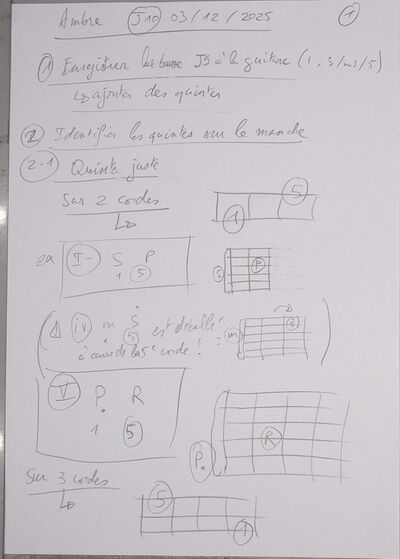 Ambre J10 03/12/2025 1
1 Enregistrer la basse J9 à la guitare (1, 3/m3/5)
↳ ajouter des quintes
2 Identifier les quintes sur le manche
2-1 Quinte juste
Sur 2 cordes
1 5
ex I- S P
1 5
S P
(⚠ iv m Ṡ est décalé
5
à cause de la 5e corde !
= m Ṡ )
V P. R
1 5
P. R
Sur 3 cordes
5 1